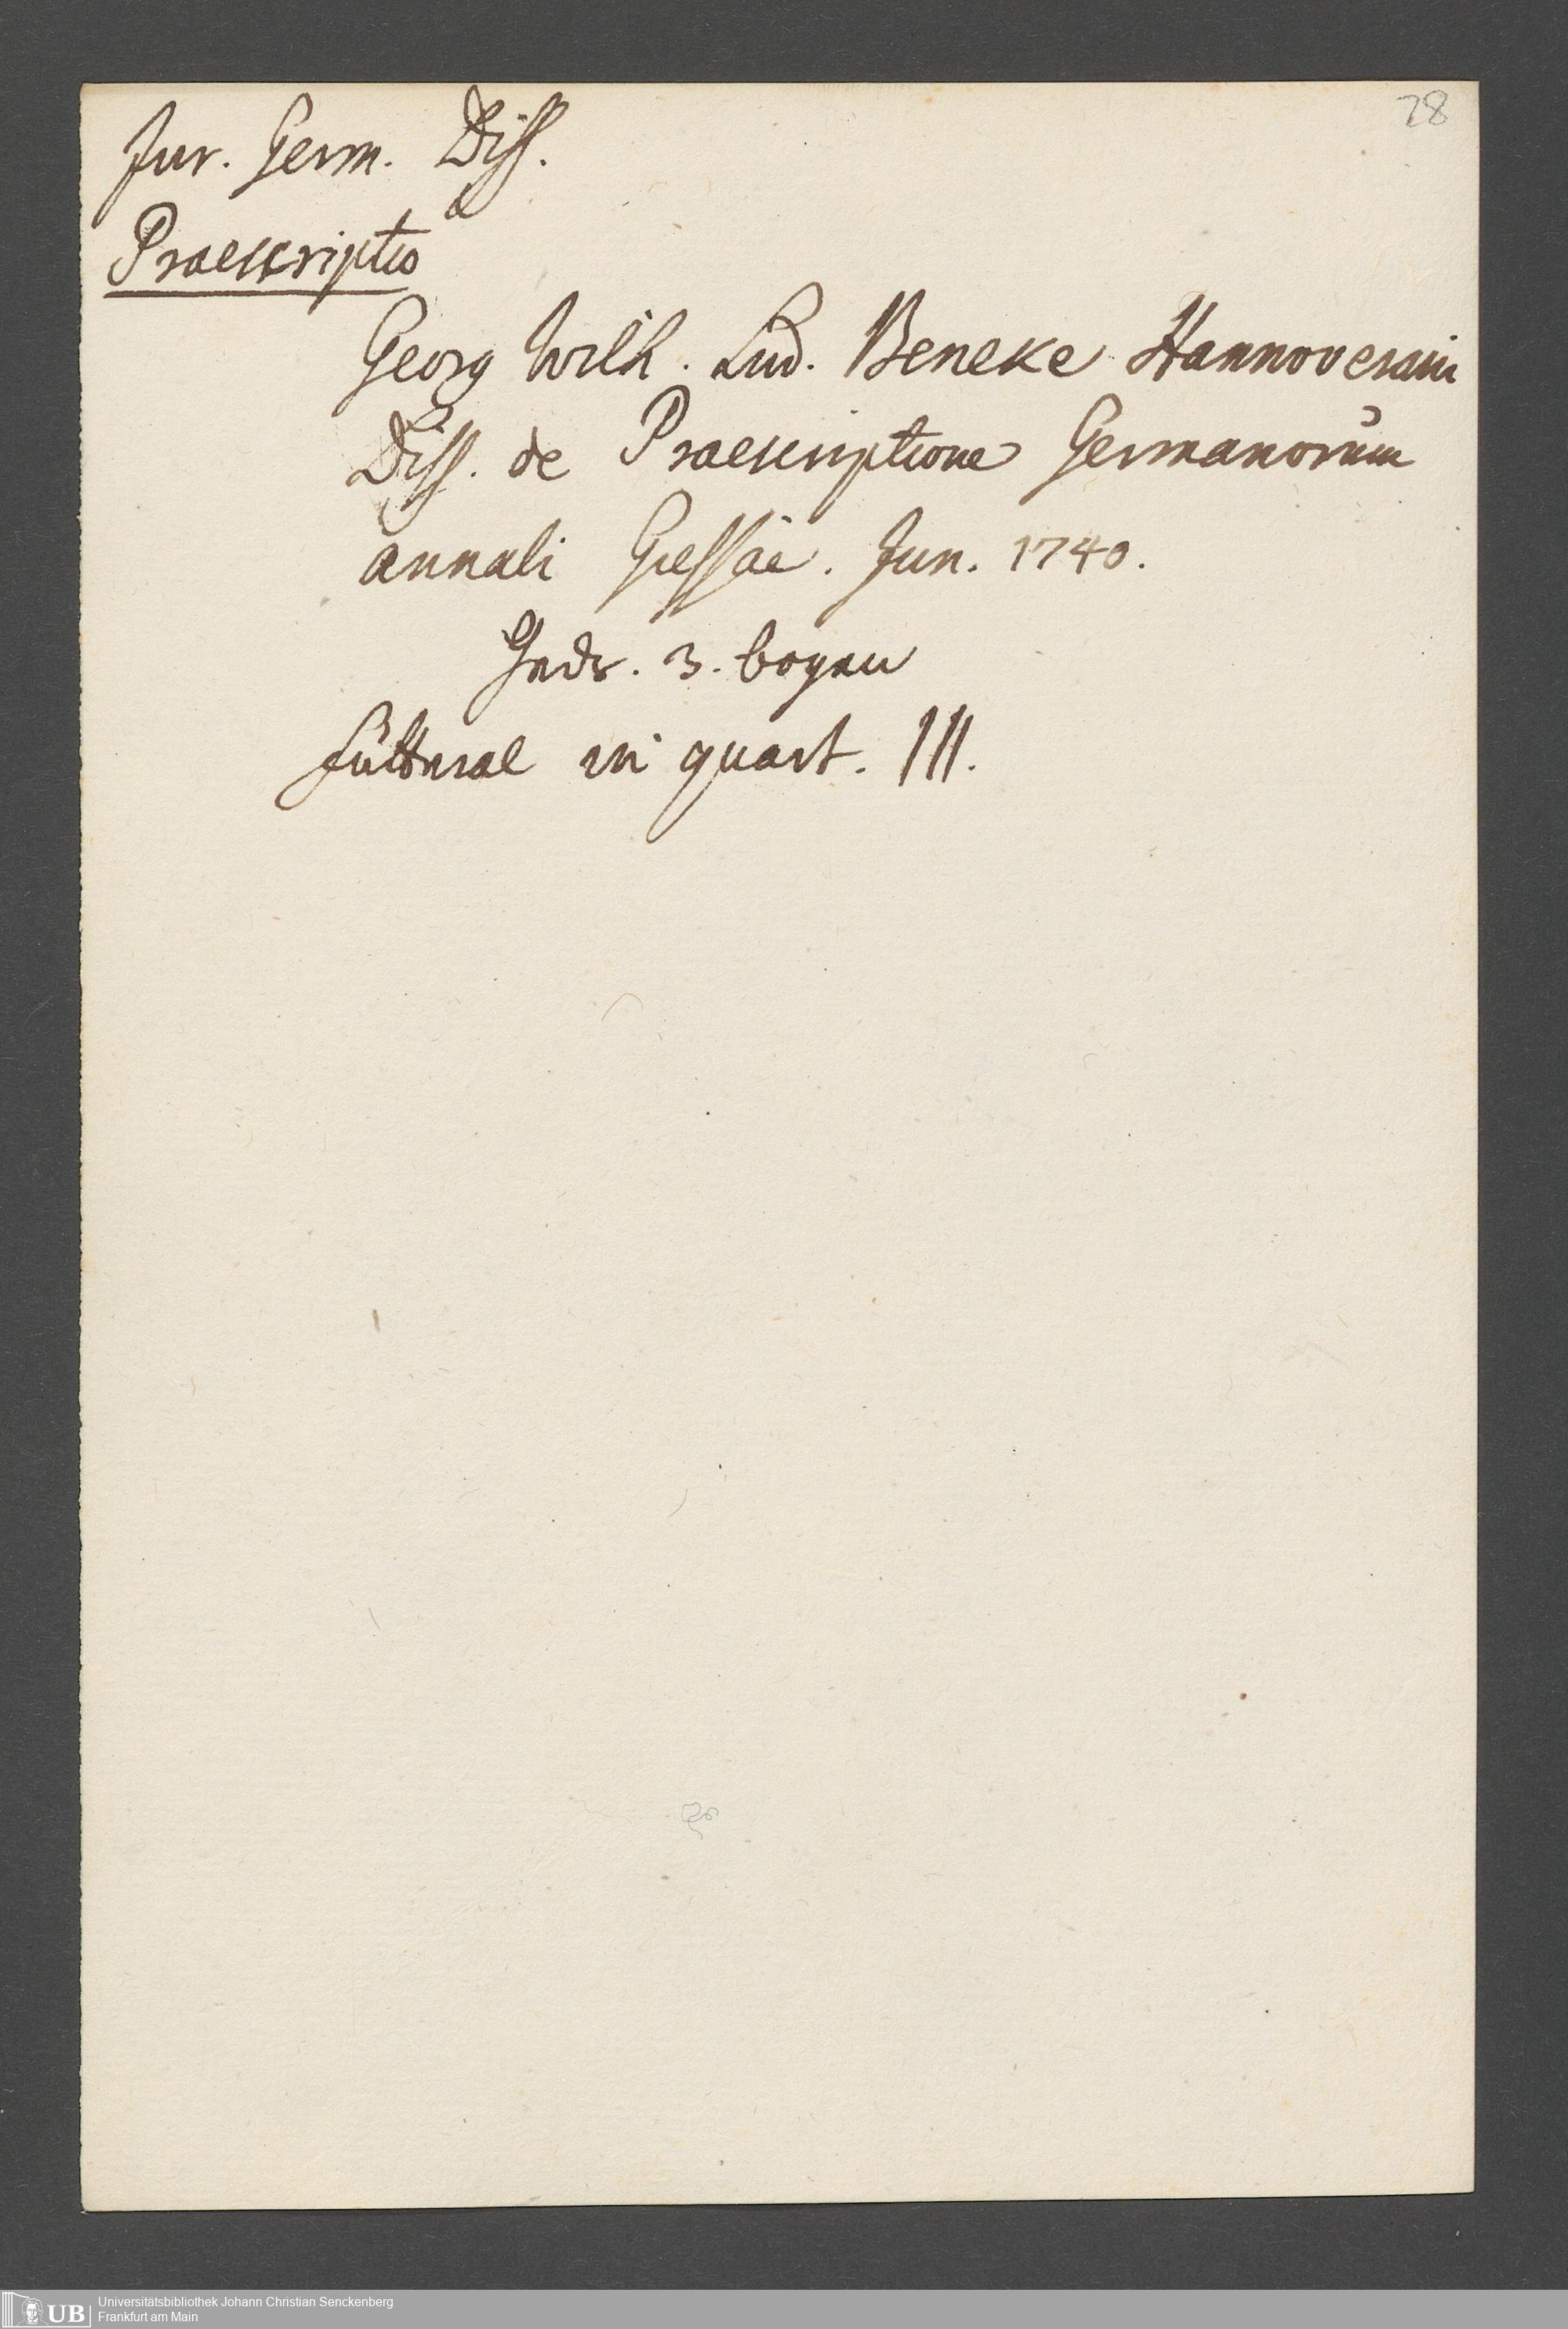 28
Jur. Germ. Diss.
Praescriptio
Georg Wilh. Lud. Beneke Hannoverani
Diss. de Praescriptione Germanorum
annali Giessae. Jun. 1740.
3. bogen
futteral in quart. III.
UB Universitätsbibliothek Johann Christian Senckenberg
Frankfurt am Main